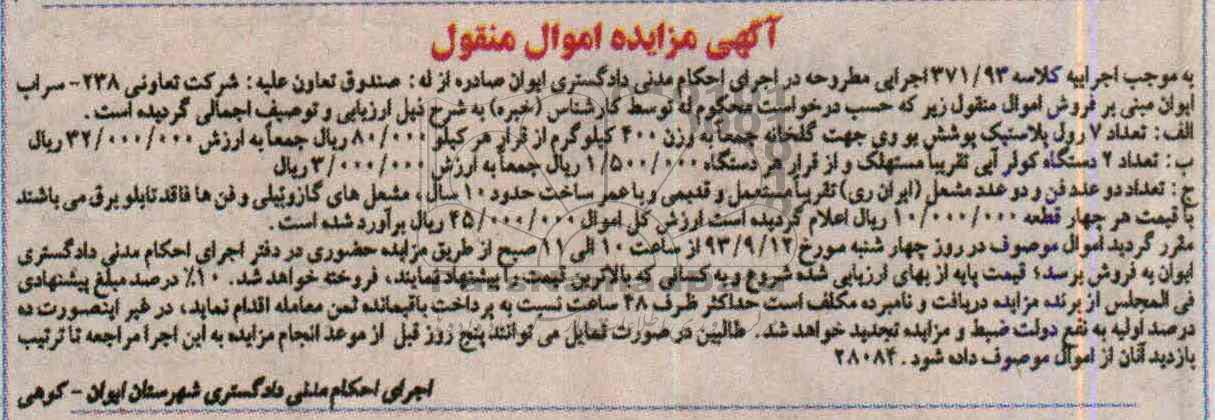 آگهی مزایده اموال منقول
به موجب اجراییه کلاسه ۳۷۱/۹۳ اجرایی مطروحه در اجرای احکام مدنی دادگستری ایوان صادره از له: صندوق تعاون علیه: شرکت تعاونی ۲۳۸- سراب
ایوان مبنی بر فروش اموال منقول زیر که حسب درخواست محکوم له توسط کارشناس (خبره) به شرح ذیل ارزیابی و توصیف اجمالی گردیده است.
الف: تعداد ۷ رول پلاستیک پوشش یو وی جهت گلخانه جمعاً به وزن ۴۰۰ کیلوگرم از قرار هر کیلو ۸۰/۰۰۰ ریال جمعاً به ارزش ۳۲/۰۰۰/۰۰۰ ریال
ب: تعداد ۲ دستگاه کولر آبی تقریبا مستهلک و از قرار هر دستگاه ۱/۵۰۰/۰۰۰ ریال جمعاً به ارزش ۳/۰۰۰/۰۰۰ ریال
ج: تعداد دو عدد فن و دو عدد مشعل (ایران ری) تقریباً مستعمل و قدیمی و با عمر ساخت حدود ۱۰ سال، مشعل های گازوئیلی و فن ها فاقد تابلو برق می باشند
با قیمت هر چهار قطعه ۱۰/۰۰۰/۰۰۰ ریال اعلام گردیده است ارزش کل اموال ۴۵/۰۰۰/۰۰۰ ریال برآورد شده است.
مقرر گردید اموال موصوف در روز چهار شنبه مورخ ۹۳/۹/۱۲ از ساعت ۱۰ الی ۱۱ صبح از طریق مزایده حضوری در دفتر اجرای احکام مدنی دادگستری
ایوان به فروش برسد؛ قیمت پایه از بهای ارزیابی شده شروع و به کسانی که بالاترین قیمت را پیشنهاد نمایند، فروخته خواهد شد. ۱۰٪ درصد مبلغ پیشنهادی
فی المجلس از برنده مزایده دریافت و نامبرده مکلف است حداکثر ظرف ۴۸ ساعت نسبت به پرداخت باقیمانده ثمن معامله اقدام نماید، در غیر اینصورت ده
درصد اولیه به نفع دولت ضبط و مزایده تجدید خواهد شد. طالبین در صورت تمایل می توانند پنج روز قبل از موعد انجام مزایده به این اجرا مراجعه تا ترتیب
بازدید آنان از اموال موصوف داده شود. ۲۸۰۸۴
اجرای احکام مدنی دادگستری شهرستان ایوان - کوهی